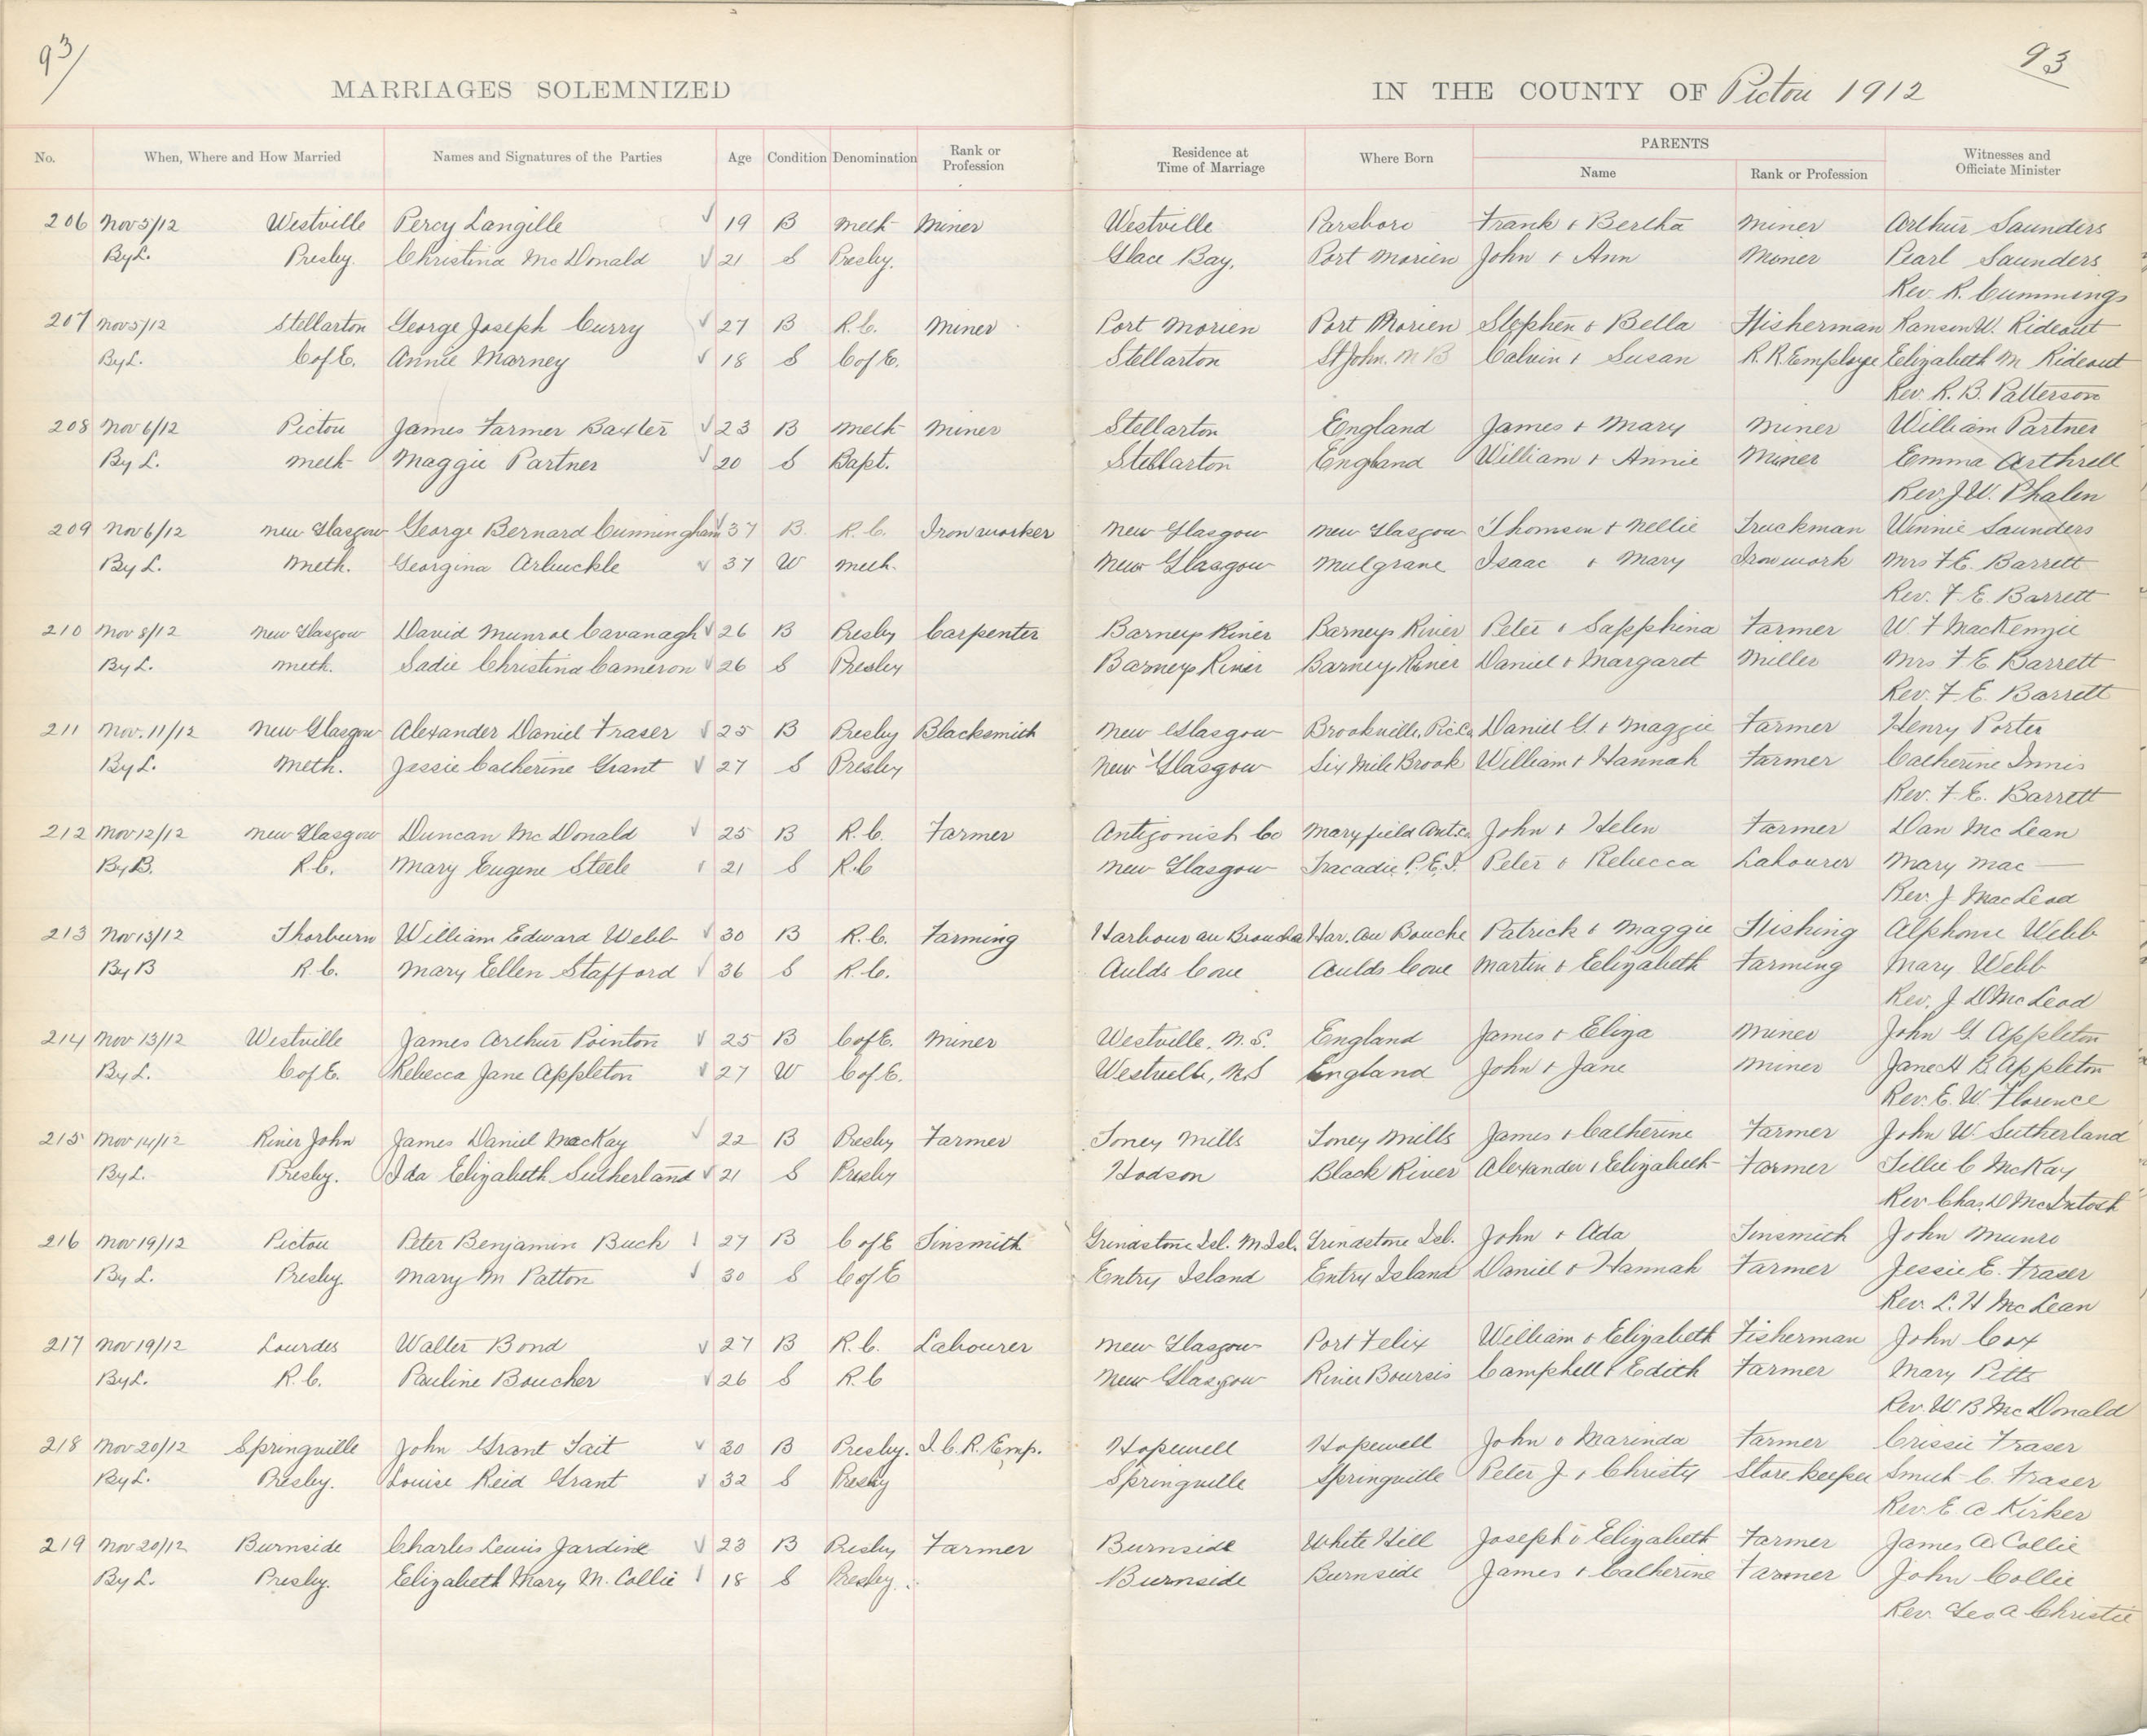 93/
93
MARRIAGES SOLEMNIZED IN THE COUNTY OF Pictou 1912
No. When, Where and How Married Names and Signatures of the Parties Age Condition Denomination Rank or Profession Residence at Time of Marriage Where Born PARENTS Name Rank or Profession Witnesses and Officiate Minister
206 Nov 5/12 Westville Percy Langille 19 B Meth Miner Westville Parsboro Frank & Bertha Miner Arthur Saunders
By L. Presby. Christina McDonald 21 S Presby. Glace Bay. Port Morien John & Ann Miner Pearl Saunders
Rev. R. Cummings
207 Nov 5/12 Stellarton George Joseph Curry 27 B R.C. Miner Port Morien Port Morien Stephen & Bella Fisherman Ranson W. Rideout
By L. C of E. Annie Marney 18 S C of E. Stellarton St John. N B Calvin & Susan R. R. Employe Elizabeth M Rideout
Rev. R. B. Patterson
208 Nov 6/12 Pictou James Farmer Baxter 23 B Meth Miner Stellarton England James & Mary Miner William Partner
By L. Meth Maggie Partner 20 S Bapt. Stellarton England William & Annie Miner Emma Arthrell
Rev. J W. Phalen
209 Nov 6/12 New Glasgow George Bernard Cunningham 37 B. R. C. Iron worker New Glasgow New Glasgow Thomson & Nellie Truckman Winnie Saunders
By L. Meth. Georgina Arbuckle 37 W Meth. New Glasgow Mulgrane Isaac & Mary Iron work Mrs F E. Barrett
Rev. F. E. Barrett
210 Nov 8/12 New Glasgow David Munroe Cavanagh 26 B Presby Carpenter Barneys River Barneys River Peter & Sapphina Farmer W. F MacKenzie
By L. Meth. Sadie Christina Cameron 26 S Presby Barneys River Barneys River Daniel & Margaret Miller Mrs F. E. Barrett
Rev. F. E. Barrett
211 Nov. 11/12 New Glasgow Alexander Daniel Fraser 25 B Presby Blacksmith New Glasgow Brookville, Pic. Co Daniel G. & Maggie Farmer Henry Porter
By L. Meth. Jessie Catherine Grant 27 S Presby New Glasgow Six Mile Brook William & Hannah Farmer Catherine Innis
Rev. F. E. Barrett
212 Nov 12/12 New Glasgow Duncan McDonald 25 B R.C. Farmer Antigonish Co Maryfield Ant. Co John & Helen Farmer Dan McLean
By B. R.C. Mary Eugene Steele 21 S R.C New Glasgow Tracadie P.E.I. Peter & Rebecca Labourer Mary Mac —
Rev. J MacLeod
213 Nov 13/12 Thorburn William Edward Webb 30 B R.C. Farming Harbour au Brouche Har. Au Bouche Patrick & Maggie Fishing Alphonse Webb
By B R.C. Mary Ellen Stafford 36 S R.C. Aulds Cove Aulds Cove Martin & Elizabeth Farming Mary Webb
Rev. J. D McLeod
214 Nov 13/12 Westville James Arthur Pointon 25 B C of E. Miner Westville, N. S. England James & Eliza Miner John G. Appleton
By L. C of E. Rebecca Jane Appleton 27 W C of E. Westville, N.S England John & Jane Miner Jane H B. Appleton
Rev. E. W. Florence
215 Nov 14/12 River John James Daniel MacKay 22 B Presby Farmer Toney Mills Toney Mills James & Catherine Farmer John W. Sutherland
By L. Presby. Ida Elizabeth Sutherland 21 S Presby Hodson Black River Alexander & Elizabeth Farmer Tillie C McKay
Rev Chas. D McIntosh
216 Nov 19/12 Pictou Peter Benjamin Buck 27 B C of E Tinsmith Grindstone Isl. M. Isl. Grindstone Isl. John & Ada Tinsmith John Munro
By L. Presby. Mary M Patton 30 S C of E Entry Island Entry Island Daniel & Hannah Farmer Jessie E. Fraser
Rev. L. H McLean
217 Nov 19/12 Lourdes Walter Bond 27 B R.C. Labourer New Glasgow Port Felix William & Elizabeth Fisherman John Cox
By L. R.C. Pauline Boucher 26 S R.C New Glasgow River Boursis Campbell & Edith Farmer Mary Pitts
Rev. W B McDonald
218 Nov 20/12 Springville John Grant Tait 30 B Presby. I.C.R. Emp. Hopewell Hopewell John & Marinda Farmer Crissie Fraser
By L. Presby. Louise Reid Grant 32 S Presby Springville Springville Peter J. & Christy Store keeper Smith C. Fraser
Rev. E A Kirker
219 Nov 20/12 Burnside Charles Lewis Jardine 23 B Presby Farmer Burnside White Hill Joseph & Elizabeth Farmer James A Collie
By L. Presby. Elizabeth Mary M. Collie 18 S Presby. Burnside Burnside James & Catherine Farmer John Collie
Rev. Geo A Christie